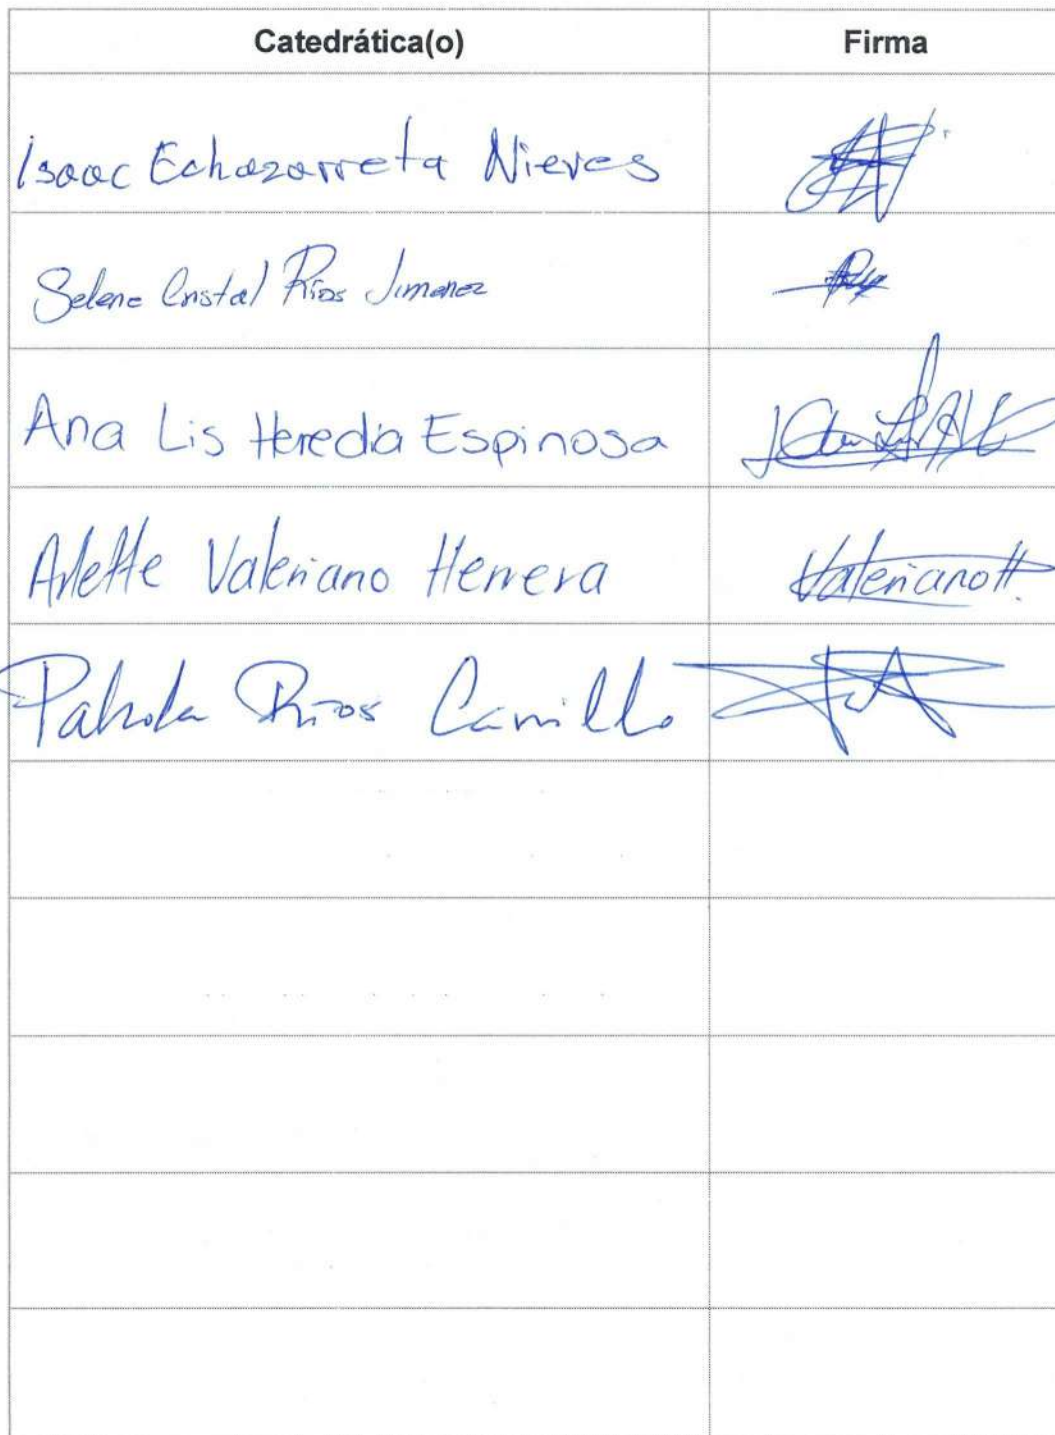 Catedrática(o) Firma
Isaac Echazarreta Nieves
Selene Cristal Ríos Jimenez
Ana Lis Heredia Espinosa
Arlette Valeriano Herrera Valeriano H.
Ríos Carrillo